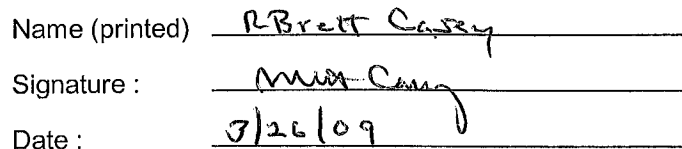 Name (printed) R Brett Casey
Signature :
Date : 3/26/09